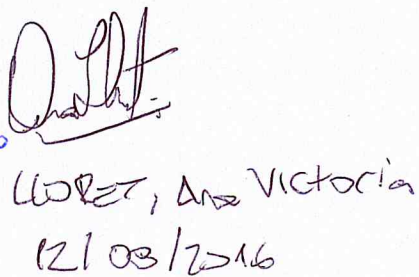 LLORET, Ana Victoria
12/03/2016